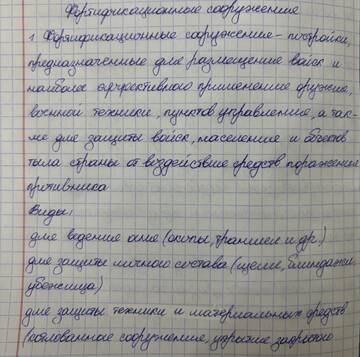 Фортификационные сооружение
1. Фортификационные сооружение - постройки,
предназначенные для размещение войск и
наиболее эффективного применение оружие,
военной техники, пунктов управление, а так-
же для защиты войск, население и объектов
тыла страны от воздействие средств поражение
противника
Виды:
для ведение огне (окопы, траншеи и др.)
для защиты личного состава (щели, блиндажи,
убежища)
для защиты техники и материальных средств
(котлованное сооружение, укрытие закрытого